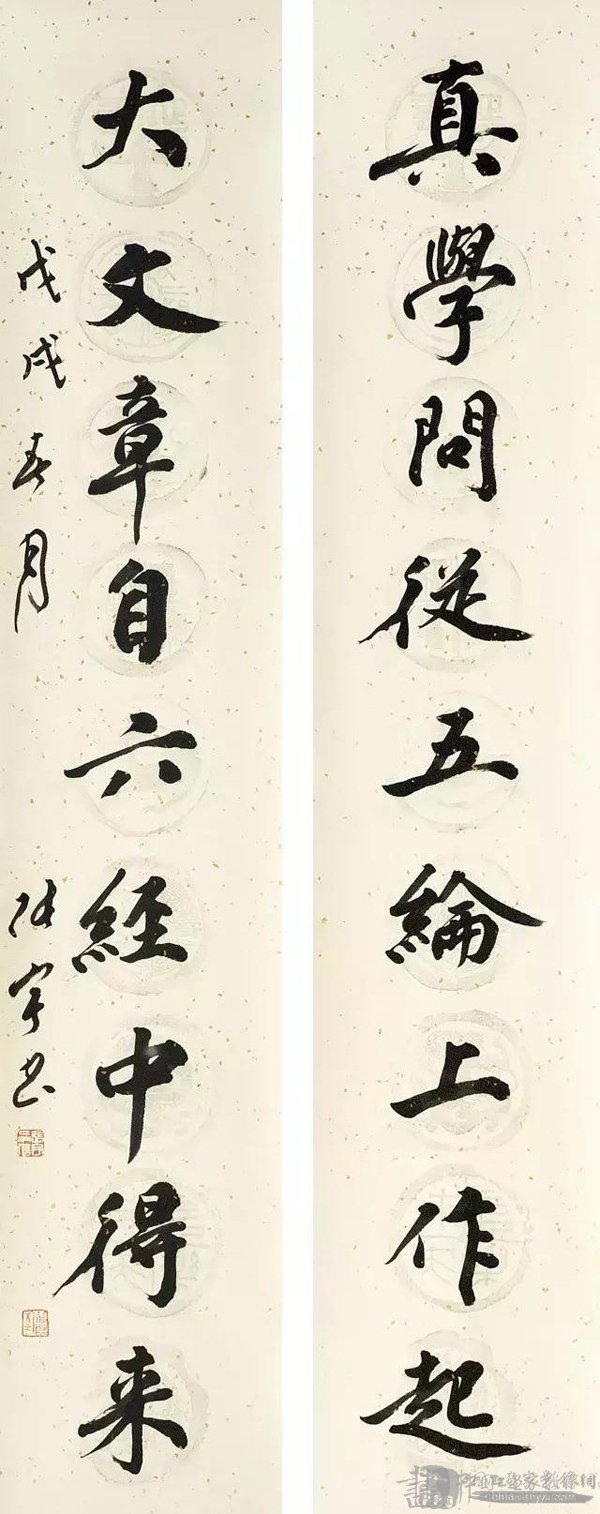 真學問從五綸上作起
大文章自六經中得来
戊戌春月
宇书